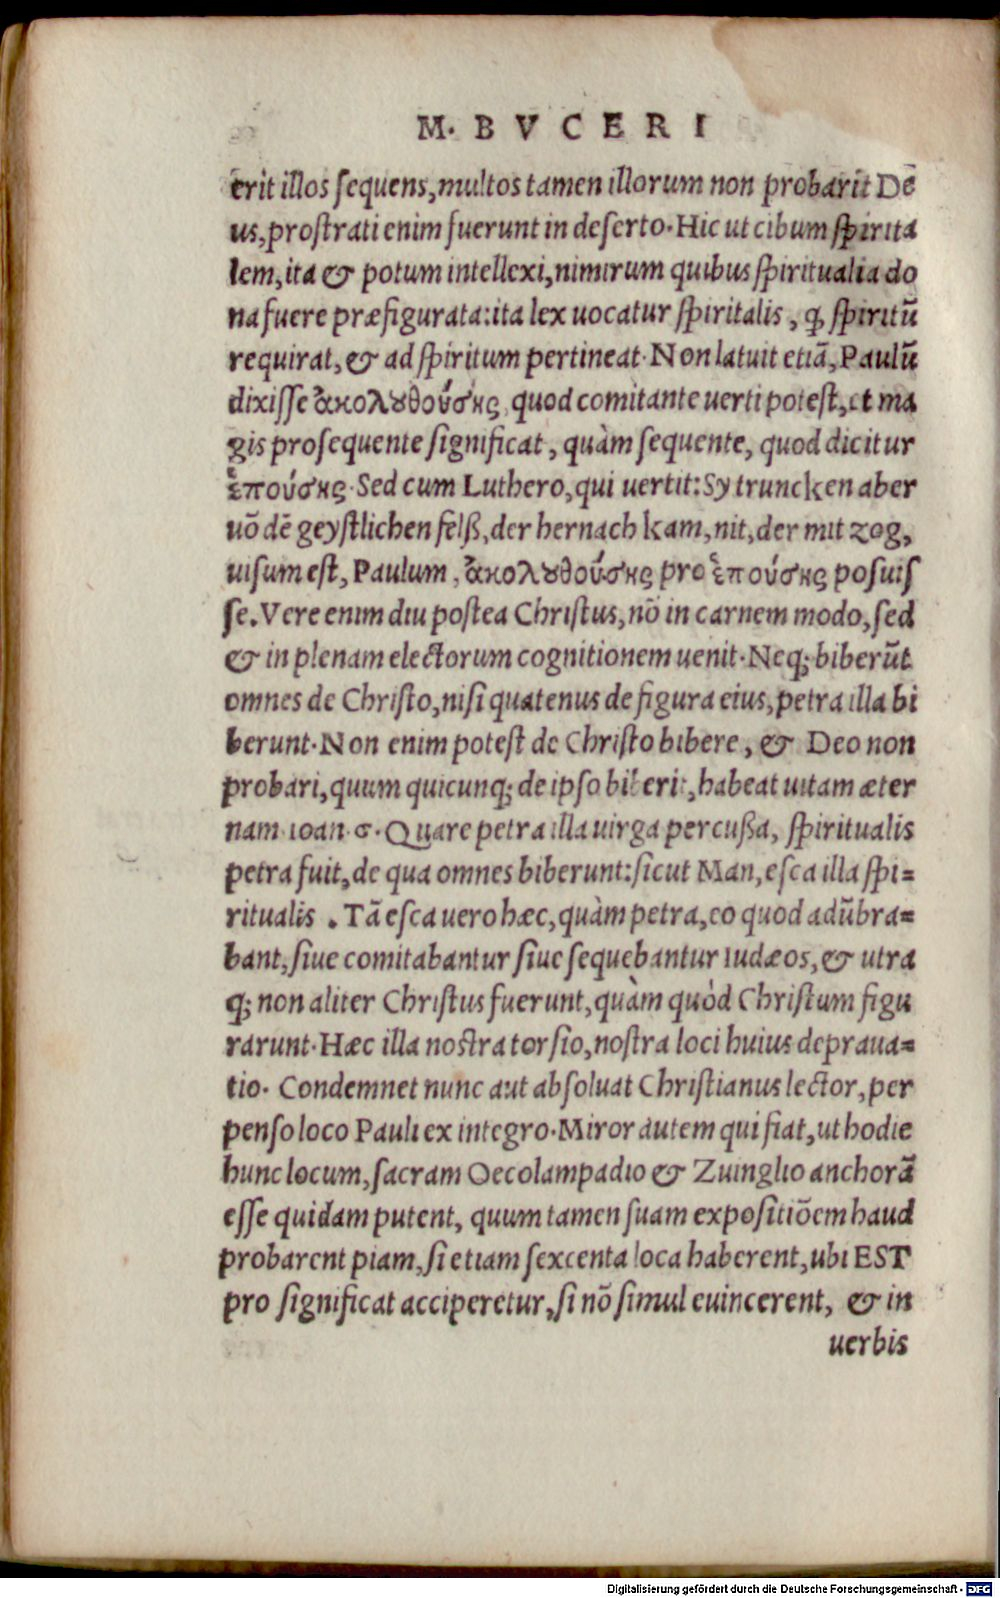 M. BVCERI
erit illos ſequens, multos tamen illorum non probarit Dẽ
us, proſtrati enim fuerunt in deſerto. Hic ut cibum ſpirita
lem, ita & potum intellexi, nimirum quibus ſpiritualia do
na fuere præfigurata: ita lex uocatur ſpiritalis, ꝙ ſpiritũ
requirat, & ad ſpiritum pertineat. Non latuit etiã, Paulũ
dixiſſe ἀκολȣθούσης, quod comitante uerti poteſt, et ma
gis proſequente ſignificat, quàm ſequente, quod dicitur
ἑπούσης. Sed cum Luthero, qui uertit: Sy truncken aber
uõ dẽ geyſtlichen felß, der hernach kam, nit, der mit zog,
uiſum eſt, Paulum, ἀκολȣθούσης pro ἑπούσης poſuiſ
ſe. Vere enim diu poſtea Chriſtus, nõ in carnem modo, ſed
& in plenam electorum cognitionem uenit. Neq; biberũt
omnes de Chriſto, niſi quatenus de figura eius, petra illa bi
berunt. Non enim poteſt de Chriſto bibere, & Deo non
probari, quum quicunq; de ipſo biberit, habeat uitam æter
nam Ioan. 6. Quare petra illa uirga percußa, ſpiritualis
petra fuit, de qua omnes biberunt: ſicut Man, eſca illa ſpi=
ritualis. Tã eſca uero hæc, quàm petra, eo quod adũbra=
bant, ſiue comitabantur ſiue ſequebantur Iudæos, & utra
q; non aliter Chriſtus fuerunt, quàm quòd Chriſtum figu
rarunt. Hæc illa noſtra torſio, noſtra loci huius depraua=
tio. Condemnet nunc aut abſoluat Chriſtianus lector, per
penſo loco Pauli ex integro. Miror autem qui fiat, ut hodie
hunc locum, ſacram Oecolampadio & Zuinglio anchorã
eſſe quidam putent, quum tamen ſuam expoſitiõem haud
probarent piam, ſi etiam ſexcenta loca haberent, ubi EST
pro ſignificat acciperetur, ſi nõ ſimul euincerent, & in
uerbis
Digitalisierung gefördert durch die Deutsche Forschungsgemeinschaft - DFG